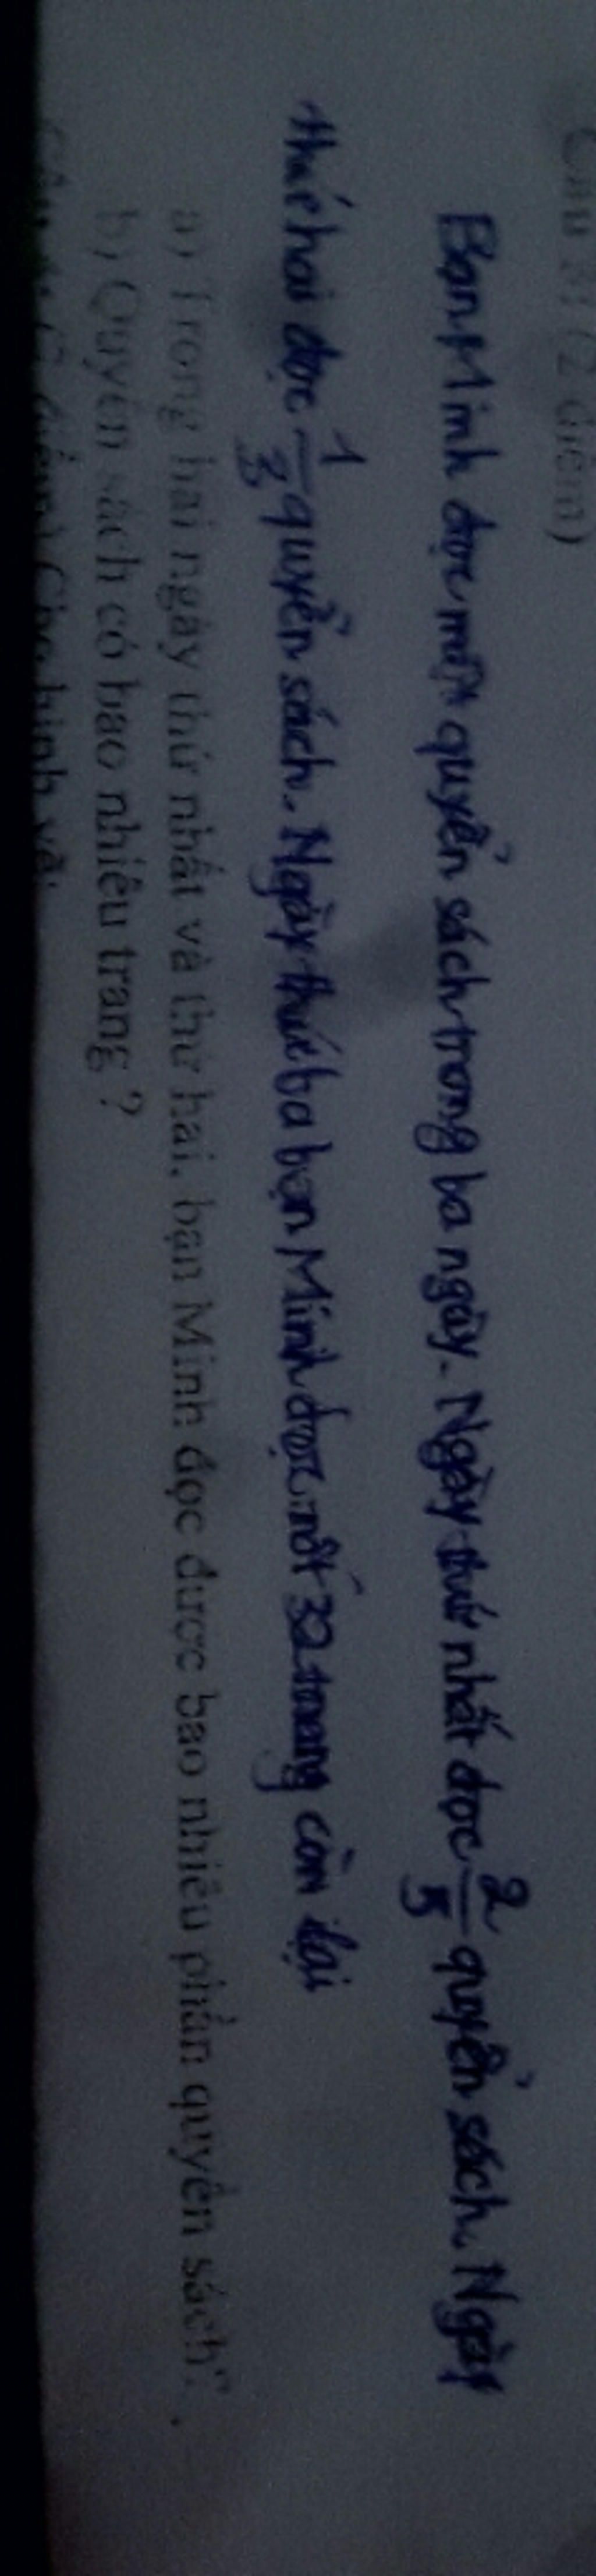 Câu 3: (2 điểm)
Bạn Minh đọc một quyển sách trong ba ngày. Ngày thứ nhất đọc 2/5 quyển sách. Ngày
thứ hai đọc 1/3 quyển sách. Ngày thứ ba bạn Minh đọc nốt 32 trang còn lại
a) Trong hai ngày thứ nhất và thứ hai, bạn Minh đọc được bao nhiêu phần quyển sách?
b) Quyển sách có bao nhiêu trang ?
điểm) Cho hình vẽ.